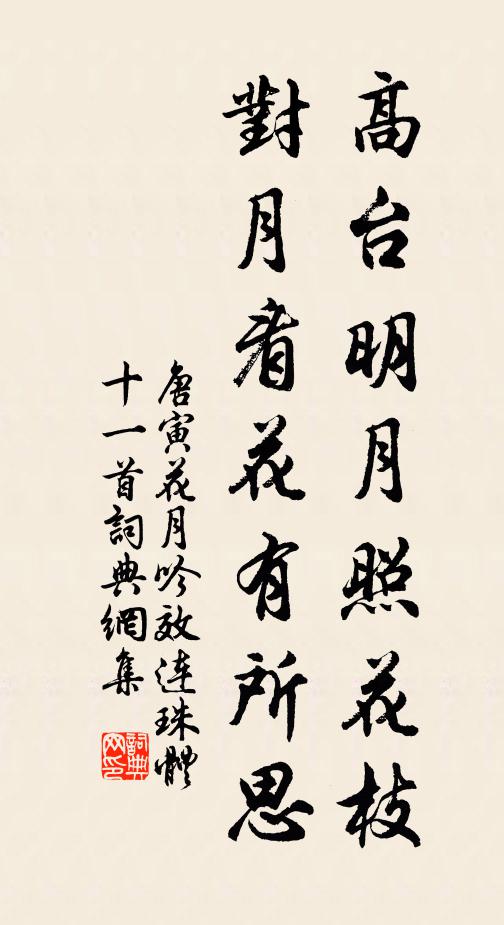 高台明月照花枝
對月看花有所思
唐寅花月吟效连珠體
十一首詞典網集
詞典
网印